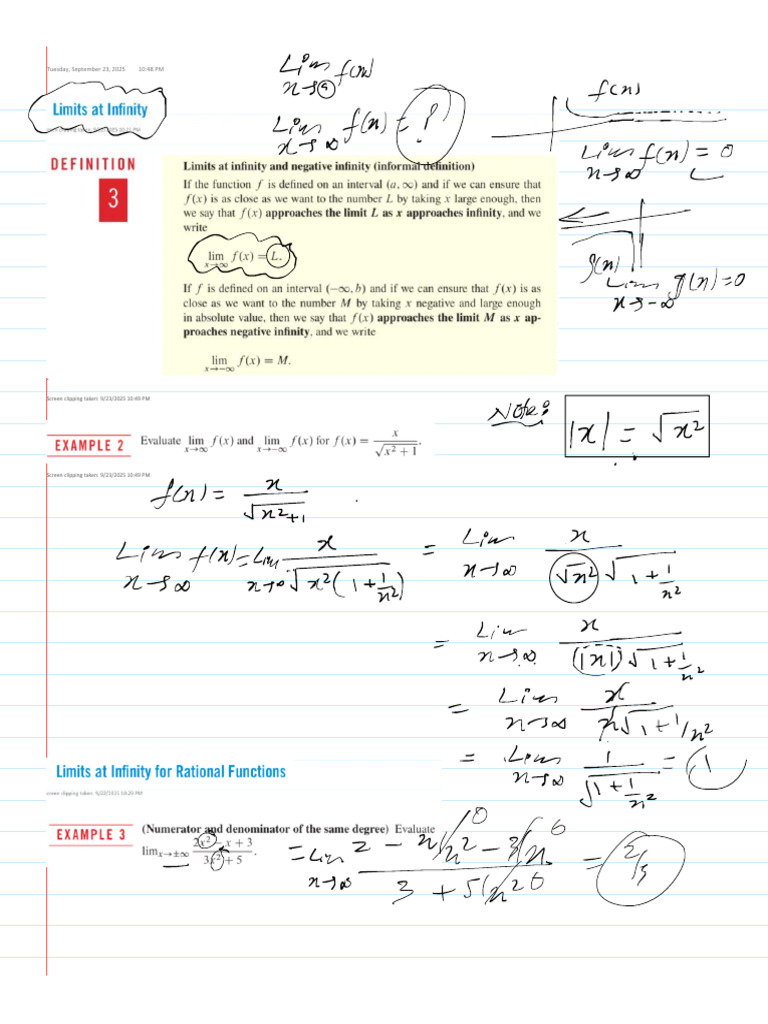 Tuesday, September 23, 2025 10:48 PM
Lim f(x)
x→a
Limits at Infinity
Lim f(x) = ?
x→∞
f(x)
Lim f(x) = 0
x→∞
g(x)
Lim g(x) = 0
x→-∞
DEFINITION
3
Limits at infinity and negative infinity (informal definition)
If the function f is defined on an interval (a, ∞) and if we can ensure that
f(x) is as close as we want to the number L by taking x large enough, then
we say that f(x) approaches the limit L as x approaches infinity, and we
write
lim f(x) = L.
x→∞
If f is defined on an interval (−∞, b) and if we can ensure that f(x) is as
close as we want to the number M by taking x negative and large enough
in absolute value, then we say that f(x) approaches the limit M as x ap-
proaches negative infinity, and we write
lim f(x) = M.
x→−∞
Screen clipping taken: 9/23/2025 10:49 PM
Note:
|x| = √x²
EXAMPLE 2 Evaluate lim x→∞ f(x) and lim x→−∞ f(x) for f(x) = x/√(x² + 1).
Screen clipping taken: 9/23/2025 10:49 PM
f(x) = x/√(x²+1)
Lim x→∞ f(x) = Lim x→∞ x/√(x²(1+1/x²)) = Lim x→∞ x/(√x² √(1+1/x²))
= Lim x→∞ x/(|x| √(1+1/x²))
= Lim x→∞ x/(x√(1+1/x²))
= Lim x→∞ 1/√(1+1/x²) = 1
Limits at Infinity for Rational Functions
EXAMPLE 3 (Numerator and denominator of the same degree) Evaluate
lim x→±∞ (2x² − x + 3)/(3x² + 5).
= Lim x→∞ (2 − x/x² − 3/x)/(3 + 5/x²) = 2/3
0
0
0